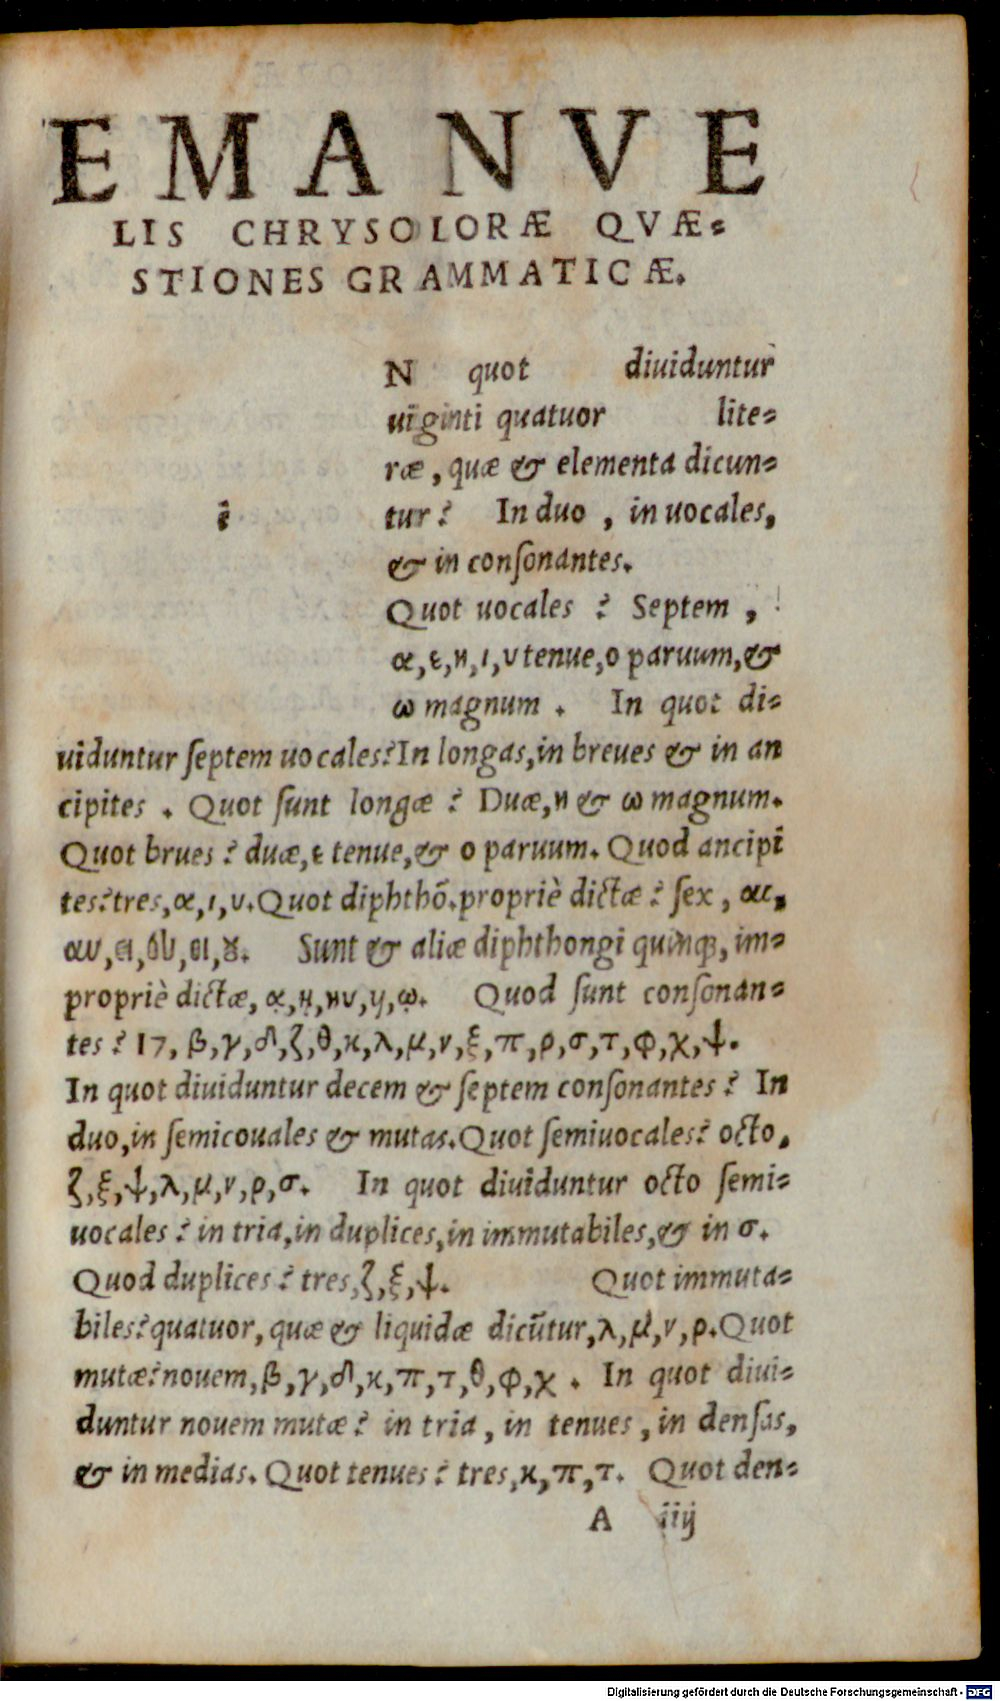 EMANVE
LIS CHRYSOLORÆ QVÆ=
STIONES GRAMMATICÆ.
N quot diuiduntur
uiginti quatuor lite=
ræ, quæ & elementa dicun=
i tur? In duo, in uocales,
& in conſonantes.
Quot uocales? Septem,
α, ε, η, ι, υ tenue, ο paruum, &
ω magnum. In quot di=
uiduntur ſeptem uocales? In longas, in breues & in an
cipites. Quot ſunt longæ? Duæ, η & ω magnum.
Quot brues? duæ, ε tenue, & ο paruum. Quod ancipi
tes? tres, α, ι, υ. Quot diphthõ. propriè dictæ? ſex, αι,
αυ, ει, ευ, οι, ȣ. Sunt & aliæ diphthongi quinqꝫ, im=
propriè dictæ, ᾳ, ῃ, ηυ, ῳ. Quod ſunt conſonan=
tes? 17, β, γ, δ, ζ, θ, κ, λ, μ, ν, ξ, π, ρ, σ, τ, φ, χ, ψ.
In quot diuiduntur decem & ſeptem conſonantes? In
duo, in ſemicouales & mutas. Quot ſemiuocales? octo,
ζ, ξ, ψ, λ, μ, ν, ρ, σ. In quot diuiduntur octo ſemi=
uocales? in tria, in duplices, in immutabiles, & in σ.
Quod duplices? tres, ζ, ξ, ψ. Quot immuta=
biles? quatuor, quæ & liquidæ dicũtur, λ, μ, ν, ρ. Quot
mutæ? nouem, β, γ, δ, κ, π, τ, θ, φ, χ. In quot diui=
duntur nouem mutæ? in tria, in tenues, in denſas,
& in medias. Quot tenues? tres, κ, π, τ. Quot den=
A iij
Digitalisierung gefördert durch die Deutsche Forschungsgemeinschaft - DFG